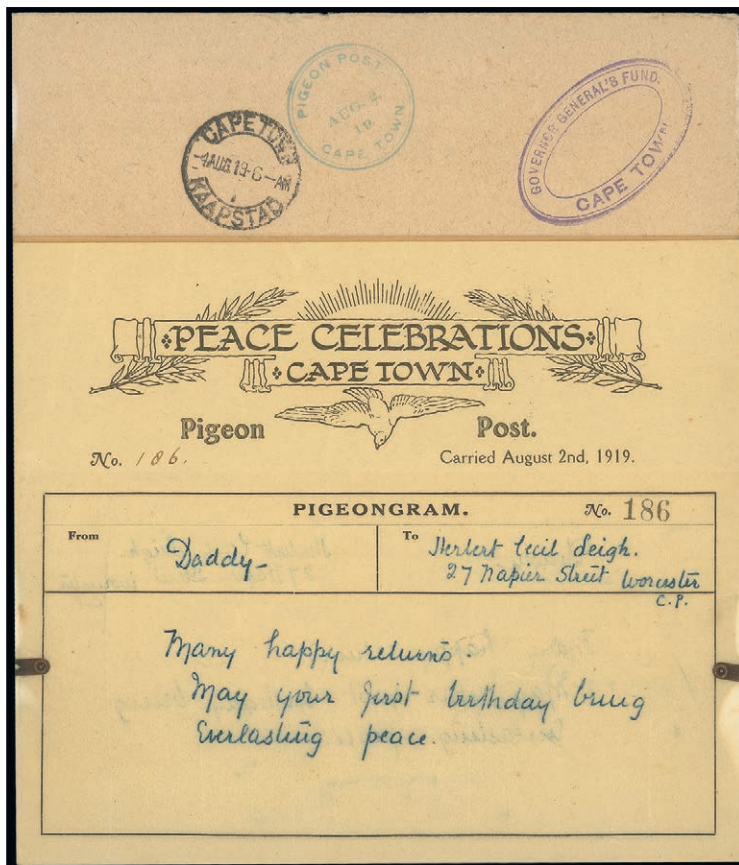 PIGEON POST
AUG. 2.
19
CAPE TOWN
CAPE TOWN
4 AUG 19-6-AM
KAAPSTAD
GOVERNOR GENERAL'S FUND.
CAPE TOWN
PEACE CELEBRATIONS
CAPE TOWN
Pigeon Post.
No. 186.
Carried August 2nd, 1919.
PIGEONGRAM. No. 186
From Daddy- To Herbert Cecil Leigh.
27 Napier Street Worcester
C.P.
Many happy returns.
May your first birthday bring
Everlasting peace.